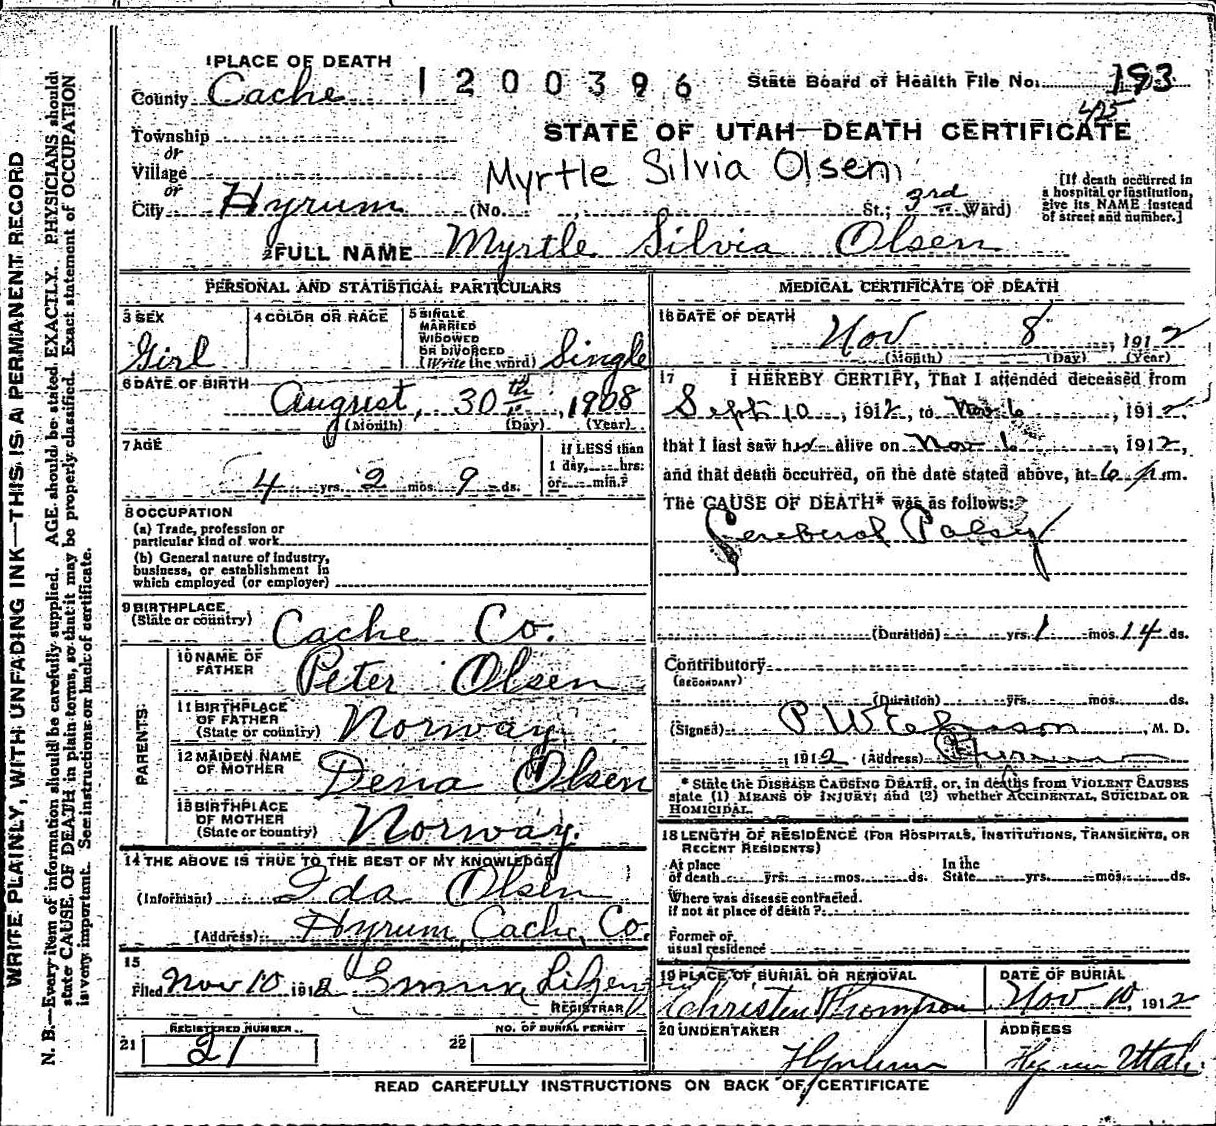 1 PLACE OF DEATH
1200396
State Board of Health File No. 193
425
County Cache
STATE OF UTAH—DEATH CERTIFICATE
Township
or
Village
or
Myrtle Silvia Olsen
City Hyrum (No. , St.; 3rd Ward)
[If death occurred in
a hospital or institution,
give its NAME instead
of street and number.]
2 FULL NAME Myrtle Silvia Olsen
PERSONAL AND STATISTICAL PARTICULARS
3 SEX
Girl
4 COLOR OR RACE
5 SINGLE
MARRIED
WIDOWED
OR DIVORCED
(Write the word) Single
6 DATE OF BIRTH
August, 30th, 1908
(Month) (Day) (Year)
7 AGE
4 yrs. 2 mos. 9 ds.
If LESS than
1 day, hrs.
or min.?
8 OCCUPATION
(a) Trade, profession or
particular kind of work
(b) General nature of industry,
business, or establishment in
which employed (or employer)
9 BIRTHPLACE
(State or country) Cache Co.
PARENTS
10 NAME OF
FATHER Peter Olsen
11 BIRTHPLACE
OF FATHER
(State or country) Norway
12 MAIDEN NAME
OF MOTHER Dena Olsen
13 BIRTHPLACE
OF MOTHER
(State or country) Norway.
14 THE ABOVE IS TRUE TO THE BEST OF MY KNOWLEDGE
(Informant) Ida Olsen
(Address) Hyrum, Cache, Co.
15
Filed Nov 10 1912
REGISTRAR
REGISTERED NUMBER
21 21
NO. OF BURIAL PERMIT
22
MEDICAL CERTIFICATE OF DEATH
16 DATE OF DEATH
Nov 8, 1912
(Month) (Day) (Year)
17 I HEREBY CERTIFY, That I attended deceased from
Sept 10, 1912, to Nov 6, 1912,
that I last saw her alive on Nov 6, 1912,
and that death occurred, on the date stated above, at 6 m.
The CAUSE OF DEATH* was as follows:
Cerebral Palsy
(Duration) yrs. 1 mos. 14 ds.
Contributory
(SECONDARY)
(Duration) yrs. mos. ds.
(Signed) P W , M. D.
, 1912 (Address) Hyrum
* State the DISEASE CAUSING DEATH, or, in deaths from VIOLENT CAUSES
state (1) MEANS OF INJURY; and (2) whether ACCIDENTAL, SUICIDAL OR
HOMICIDAL.
18 LENGTH OF RESIDENCE (FOR HOSPITALS, INSTITUTIONS, TRANSIENTS, OR
RECENT RESIDENTS)
At place
of death yrs. mos. ds.
In the
State yrs. mos. ds.
Where was disease contracted,
if not at place of death?
Former or
usual residence
19 PLACE OF BURIAL OR REMOVAL
Christen Thompson
DATE OF BURIAL
Nov 10, 1912
20 UNDERTAKER
Hyrum
ADDRESS
Hyrum Utah
READ CAREFULLY INSTRUCTIONS ON BACK OF CERTIFICATE
WRITE PLAINLY, WITH UNFADING INK—THIS IS A PERMANENT RECORD
N. B.—Every item of information should be carefully supplied. AGE should be stated EXACTLY. PHYSICIANS should
state CAUSE OF DEATH in plain terms, so that it may be properly classified. Exact statement of OCCUPATION
is very important. See instructions on back of certificate.